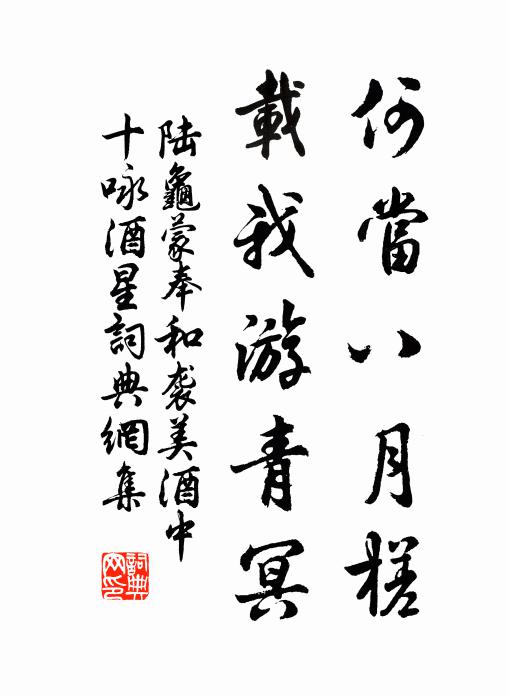 何當八月槎
載我游青冥
陸龜蒙奉和袭美酒中
十咏酒星詞典網集
詞典网印